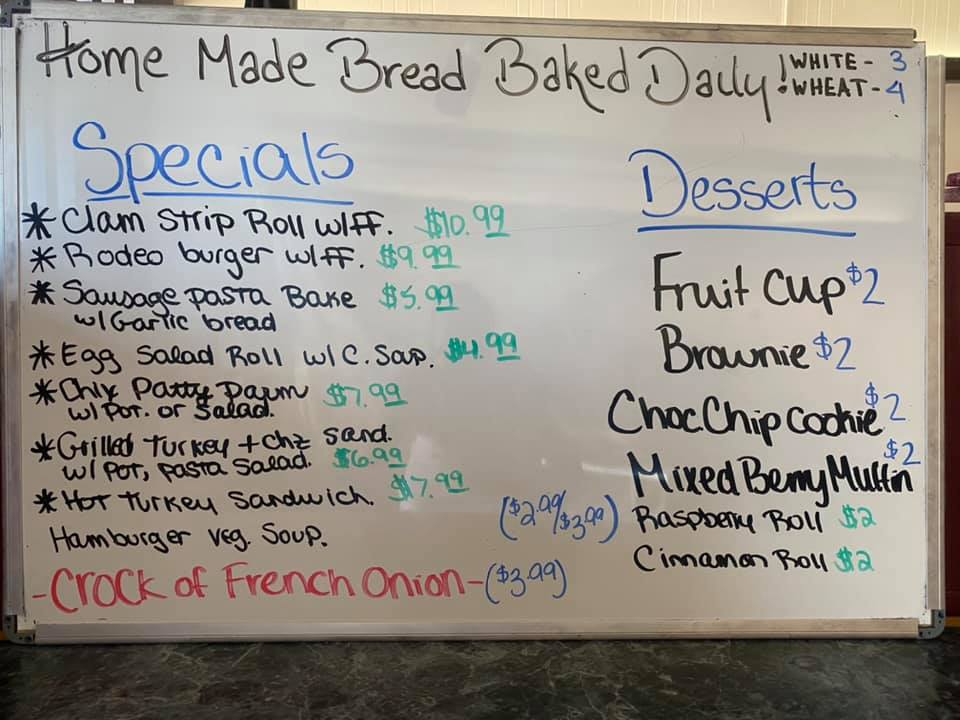 Home Made Bread Baked Daily! WHITE - 3
WHEAT - 4
Specials
* Clam Strip Roll w/ff. $10.99
* Rodeo burger w/ff. $9.99
* Sausage pasta Bake $5.99
w/Garlic bread
* Egg Salad Roll w/ C. Soup. $4.99
* Chix Patty Parm $7.99
w/ Pot. or Salad.
* Grilled Turkey + chz sand.
w/ Pot, pasta Salad. $6.99
* Hot Turkey Sandwich. $7.99
Hamburger Veg. Soup. ($2.99/$3.99)
- Crock of French Onion - ($3.99)
Desserts
Fruit Cup $2
Brownie $2
Choc Chip Cookie $2
Mixed Berry Muffin $2
Raspberry Roll $2
Cinnamon Roll $2